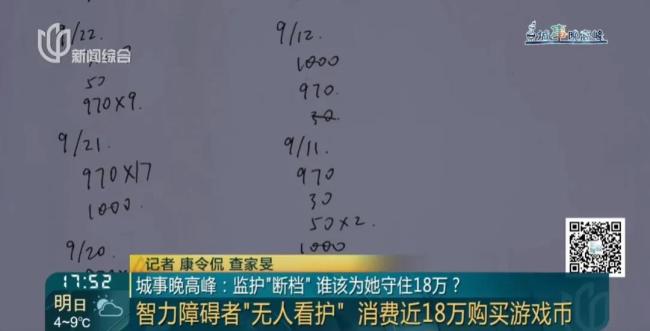 新闻综合
城事晚高峰
9/22.
50
970×9.
9/21.
970×17
1000.
9/20
9/12.
1000
970.
30
9/11.
970
30
50×2.
1000
记者 康令侃 查家旻
17:52
城事晚高峰：监护"断档" 谁该为她守住18万？
明日
4~9℃
智力障碍者"无人看护" 消费近18万购买游戏币